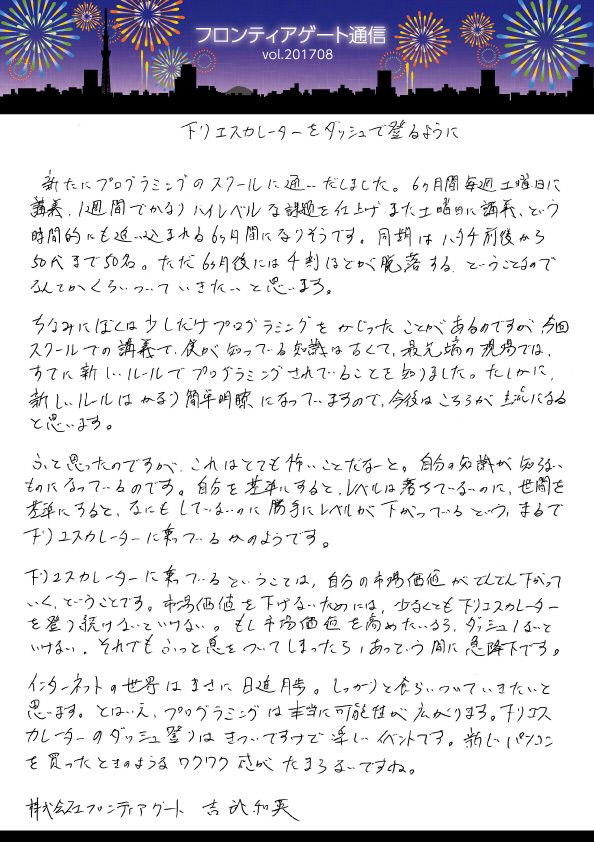 フロンティアゲート通信
vol.201708
下りエスカレーターをダッシュで登るように
新たにプログラミングのスクールに通いだしました。6ヶ月間毎週土曜日に
講義、1週間でかなりハイレベルな課題を仕上げまた土曜日に講義、という
時間的にも追い込まれる6ヶ月間になりそうです。同期はハタチ前後から
50代まで50名。ただ6ヶ月後には4割ほどが脱落する、ということなので
なんとかくらいついていきたいと思います。
ちなみにぼくは少しだけプログラミングをかじったことがあるのですが、今回
スクールでの講義で、僕が知っている知識は古くて、最先端の現場では、
すでに新しいルールでプログラミングされていることを知りました。たしかに、
新しいルールはかなり簡単明瞭になっていますので、今後はこちらが主流になる
と思います。
ふと思ったのですが、これはとても怖いことだなーと。自分の知識が知らない
ものになっているのです。自分を基準にすると、レベルは落ちていないのに、世間を
基準にすると、なにもしていないのに勝手にレベルが下がっているという、まるで
下りエスカレーターに乗っているかのようです。
下りエスカレーターに乗っているということは、自分の市場価値がでんでん下がって
いく、ということです。市場価値を下げないためには、少なくとも下りエスカレーター
を登り続けないといけない。もし市場価値を高めたいなら、ダッシュしないと
いけない。それでもふっと息をついてしまったら、あっという間に急降下です。
インターネットの世界はまさに日進月歩。しっかりと食らいついていきたいと
思います。とはいえ、プログラミングは本当に可能性が広がります。下りエス
カレーターのダッシュ登りはきついですけど楽しいイベントです。新しいパソコン
を買ったときのようなワクワク感がたまらないですね。
株式会社フロンティアゲート 吉比和英